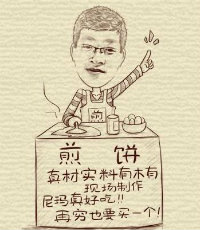 煎
煎 饼
真材实料有木有
现场制作
尼玛真好吃!!
再穷也要买一个!